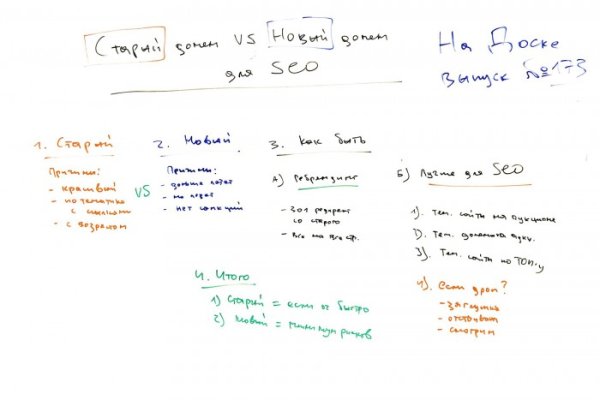 Старый домен VS Новый домен
для SEO
На Доске
выпуск №173
1. Старый
Причины:
- красивый
- по тематике
с ссылками
- с возрастом
VS
2. Новый
Причины:
- дольше
- не
- нет санкций
3. Как быть
А) Ребрендинг
- 301 редирект
со старого
- Все на все стр.
Б) Лучше для SEO
1). Тем. сайты на аукционе
2). Тем. домена аукц.
3). Тем. сайты по ТОП-у
4). Если дроп?
- заглушка
- отстаивать
- смотрим
4. Итого
1) Старый = если ок быстро
2) Новый = минимум рисков